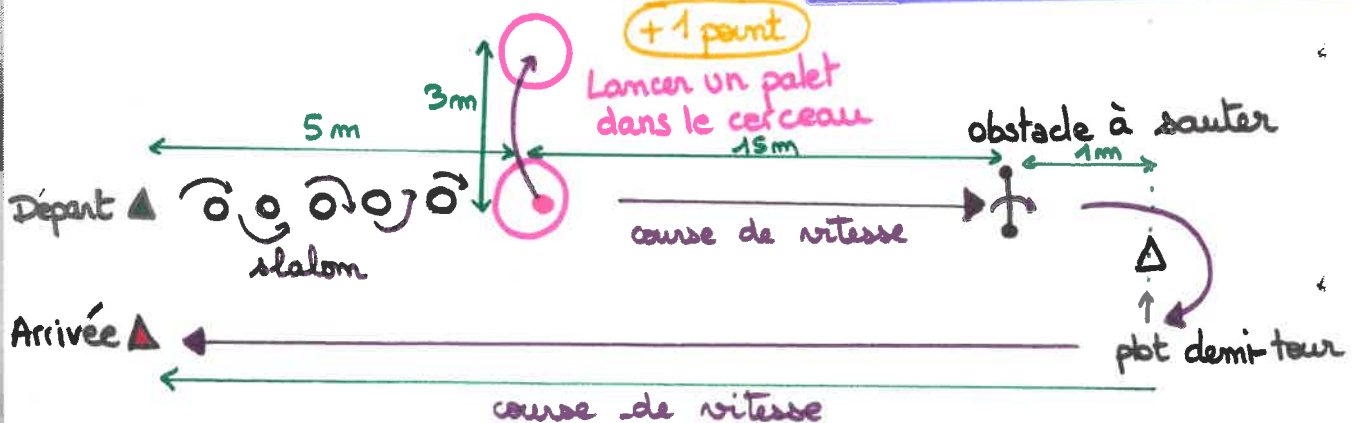 + 1 point
Lancer un palet
dans le cerceau
3m
5 m
15m
obstacle à sauter
1m
Départ
slalom
course de vitesse
Arrivée
plot demi-tour
course de vitesse